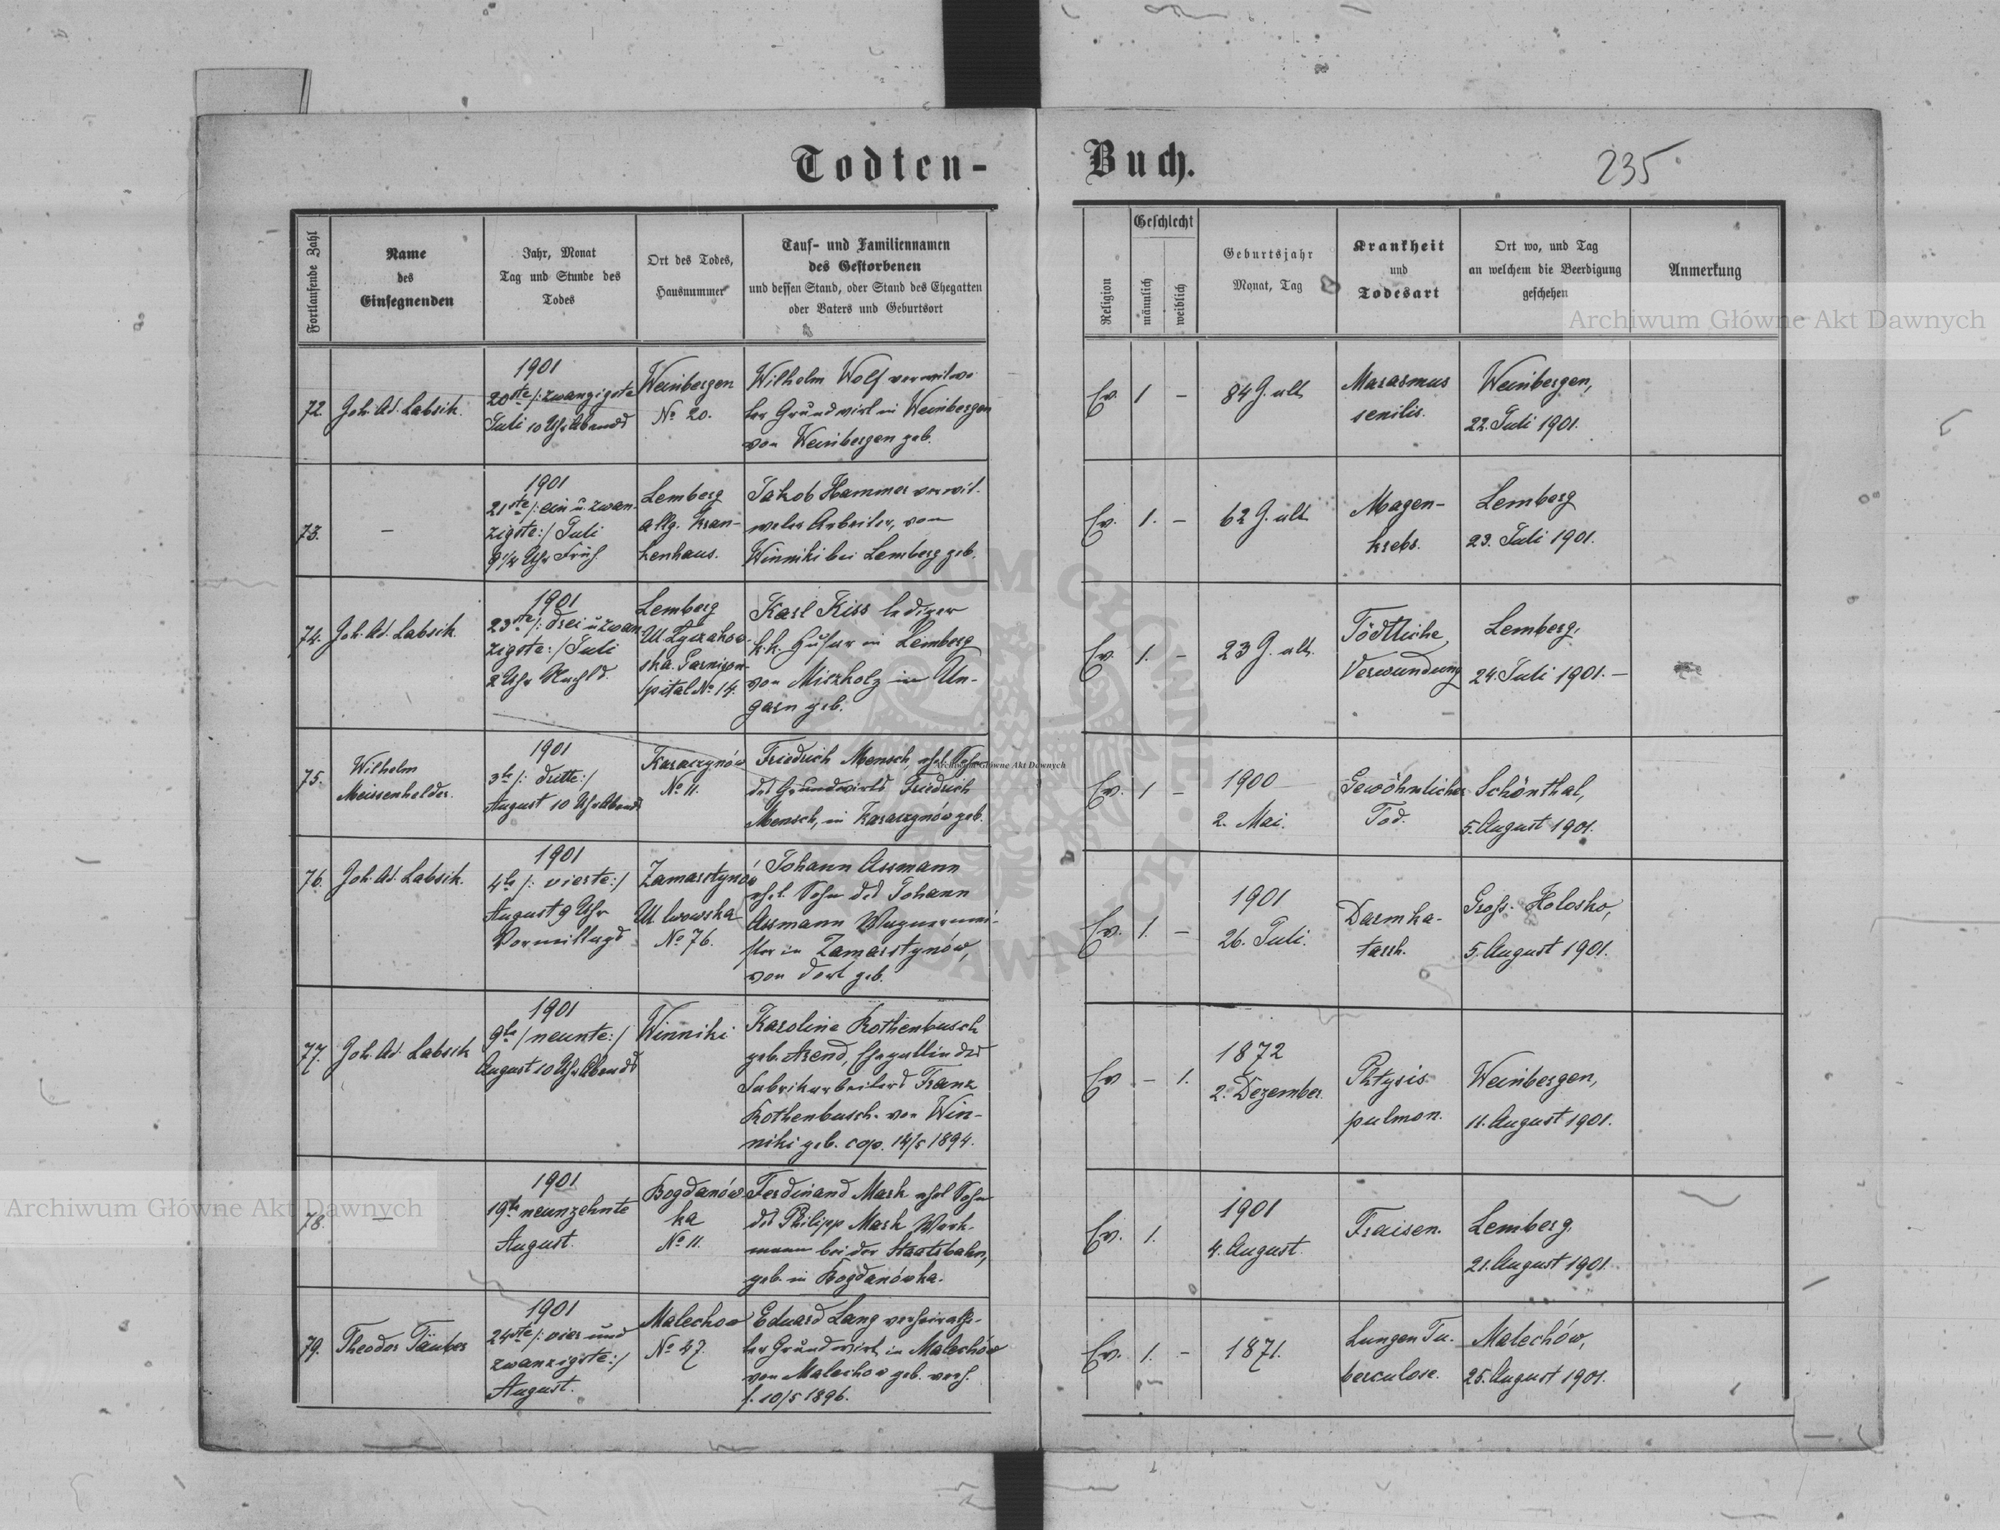 Todten-Buch.
235
Fortlaufende Zahl
Name
des
Einsegnenden
Jahr, Monat
Tag und Stunde des
Todes
Ort des Todes,
Hausnummer
Tauf- und Familiennamen
des Gestorbenen
und dessen Stand, oder Stand des Ehegatten
oder Vaters und Geburtsort
Religion
Geschlecht
männlich
weiblich
Geburtsjahr
Monat, Tag
Krankheit
und
Todesart
Ort wo, und Tag
an welchem die Beerdigung
geschehen
Anmerkung
72
Joh. Ad. Labsik.
1901
20ste /: zwanzigste
Juli 10 Uhr Abends
Weinbergen
No 20.
Wilhelm Wolf verwitwe
ter Grundwirt in Weinbergen
von Weinbergen geb.
Ev. 1 –
84 J. alt
Marasmus
senilis.
Weinbergen,
22. Juli 1901.
73.
–
1901
21ste /: ein u. zwan
zigste :/ Juli
9 1/4 Uhr Früh
Lemberg
allg. Kran-
kenhaus.
Jakob Hammer verwit.
weter Arbeiter, von
Winniki bei Lemberg geb.
Ev. 1. –
62 J. alt
Magen-
krebs.
Lemberg
23. Juli 1901.
74.
Joh. Ad. Labsik.
1901
23ste /: drei u. zwan
zigste :/ Juli
2 Uhr Nachts.
Lemberg
Ul. Łyczakow-
ska. Garnison-
spital No 14.
Karl Kiss lediger
k. k. Husar in Lemberg
von Mickholz in Un-
garn geb.
Ev. 1. –
23 J. alt.
Tödtliche
Verwundung
Lemberg,
24. Juli 1901. –
75.
Wilhelm
Meissenhelder.
1901
3te /: dritte :/
August 10 Uhr Abends
Karaczynów
No 11.
Friedrich Mensch, ehel. Sohn
des Grundwirts Friedrich
Mensch, in Karaczynów geb.
Ev. 1 –
1900
2. Mai.
Gewöhnlicher
Tod.
Schönthal,
5. August 1901.
76.
Joh. Ad. Labsik.
1901
4te /: vierte :/
August 9 Uhr
Vormittags
Zamarstynów
Ul. lwowska
No 76.
Johann Assmann
ehel. Sohn des Johann
Assmann Wagnermei-
ster in Zamarstynów,
von dort geb.
Ev. 1. –
1901
26. Juli.
Darmka-
tarrh.
Gross. Holosko,
5. August 1901.
77.
Joh. Ad. Labsik
1901
9te / neunte :/
August 10 Uhr Abends
Winniki
Karoline Rothenbusch
geb. Arend, Ehegattin des
Fabrikarbeiters Franz
Rothenbusch. von Win-
niki geb. cop. 14/5 1894.
Ev – 1.
1872
2. Dezember.
Phtysis
pulmon.
Weinbergen,
11. August 1901.
78.
–
1901
19te neunzehnte
August.
Bogdanów
ka
No 11.
Ferdinand Mark ehel Sohn
des Philipp Mark Werk-
mann bei der Staatsbahn,
geb. in Bogdanówka.
Ev. 1.
1901
4. August.
Fraisen.
Lemberg.
21. August 1901.
79.
Theodor Täuber
1901
24ste /: vier und
zwanzigste :/
August.
Malechow
No 47.
Eduard Lang verheirathe-
ter Grundwirt, in Malechów
von Malechow geb. verh.
s. 10/5 1896.
Ev. 1. –
1871.
Lungen Tu-
berculose.
Malechów,
25. August 1901.
Archiwum Główne Akt Dawnych
Archiwum Główne Akt Dawnych
Archiwum Główne Akt Dawnych
ARCHIWUM GŁÓWNE AKT DAWNYCH